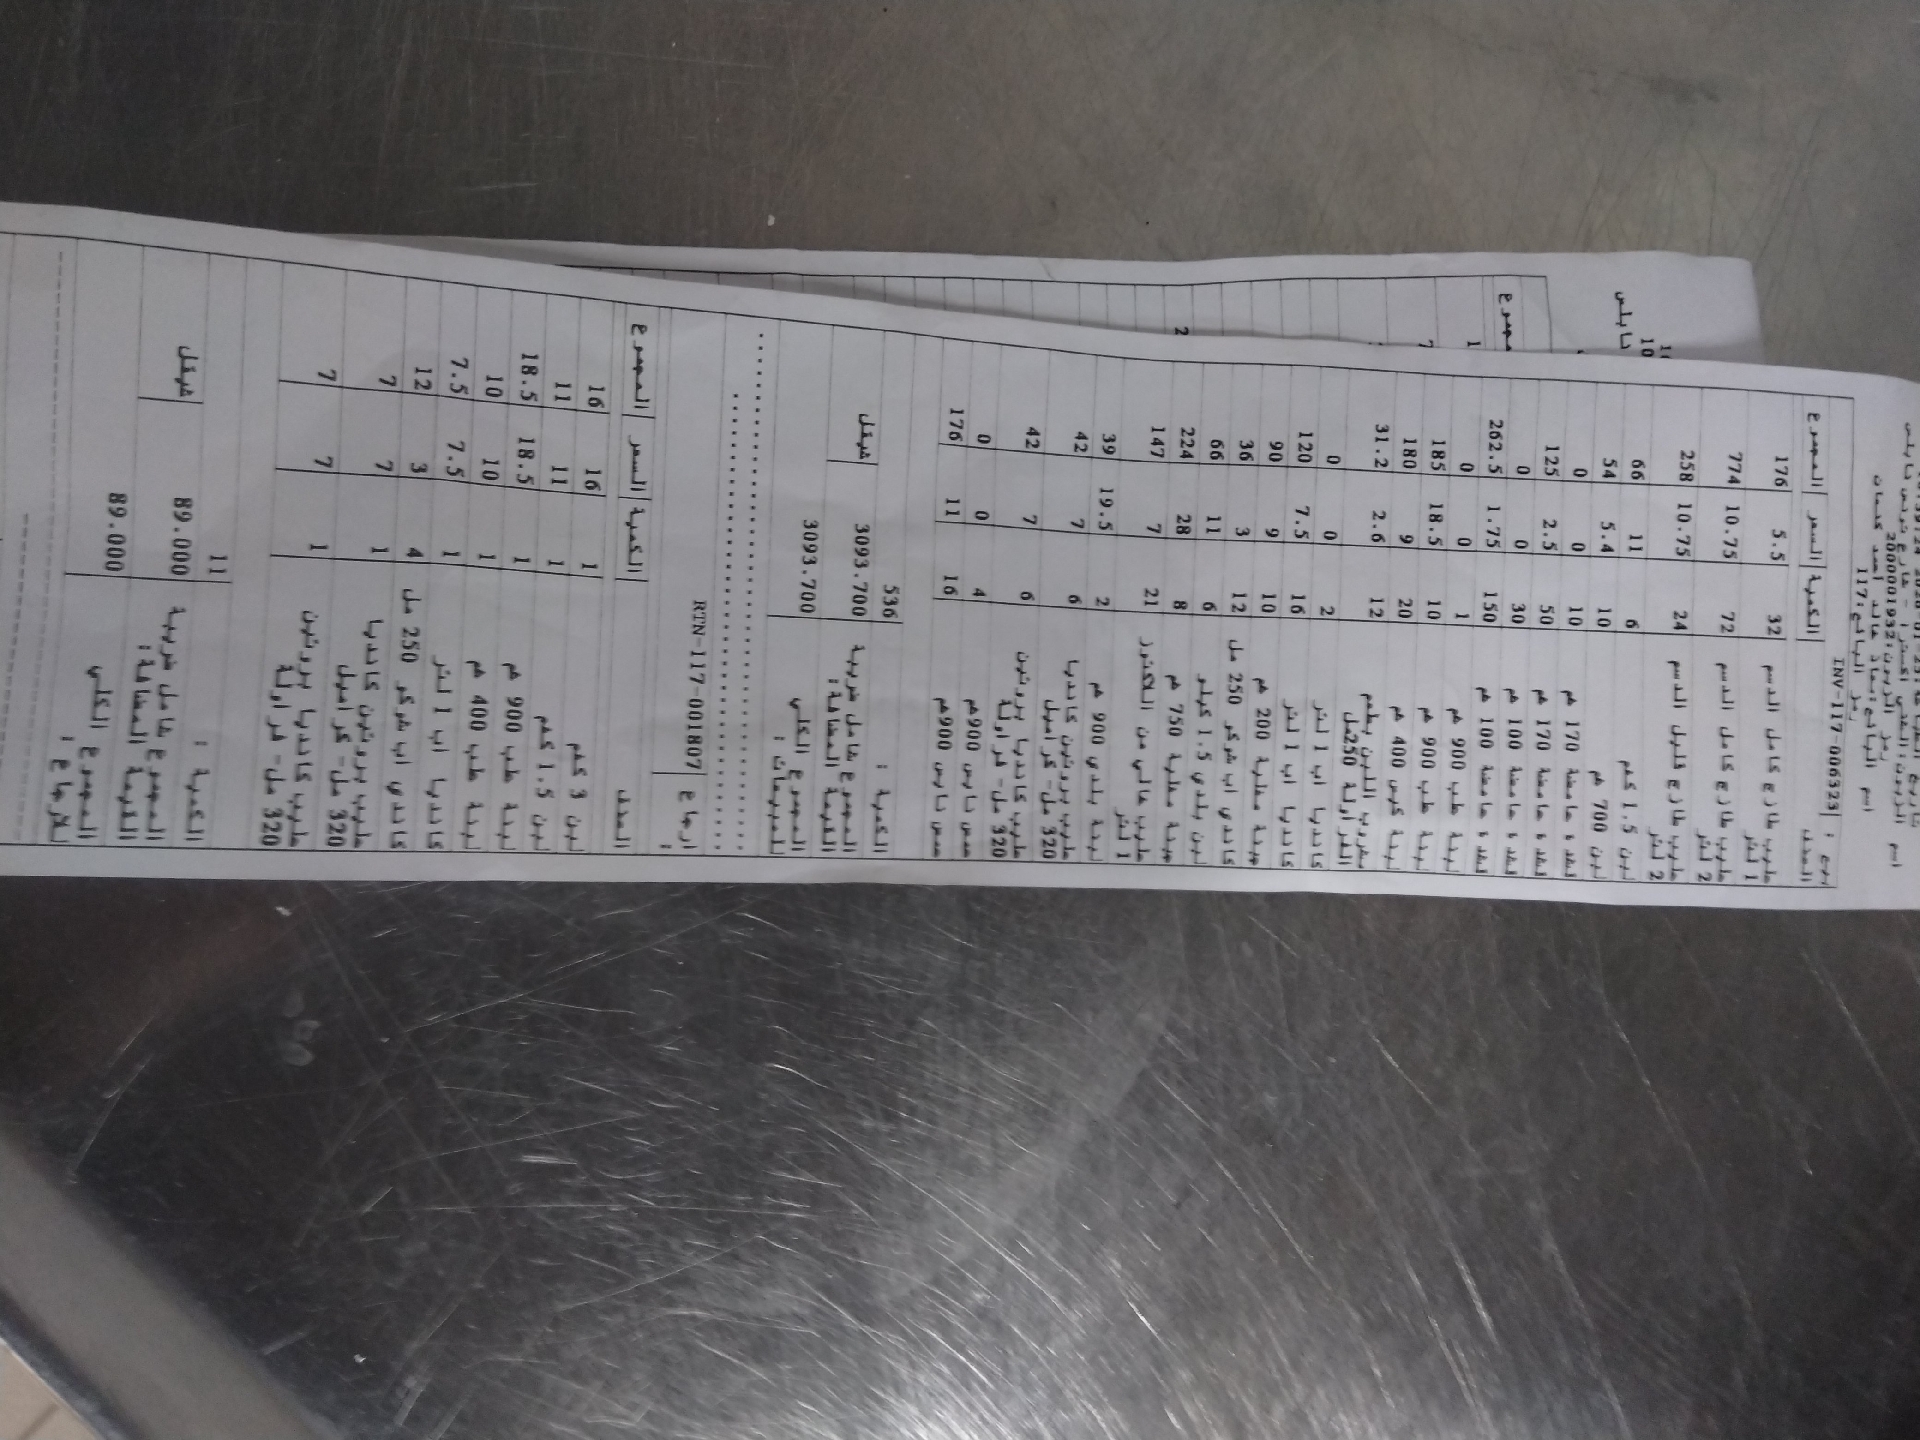 رمز الزبون:200001932
اسم البائع:معاذ خالد احمد كلبات
رمز البائع:117
بيع : INV-117-006323
الصنف الكمية السعر المجموع
حليب طازج كامل الدسم 32 5.5 176
1 لتر
حليب طازج كامل الدسم 72 10.75 774
2 لتر
حليب طازج قليل الدسم 24 10.75 258
2 لتر
لبن 1.5 كغم 6 11 66
لبن 700 غم 10 5.4 54
قشدة حامضة 170 غم 10 0 0
قشدة حامضة 170 غم 50 2.5 125
قشدة حامضة 100 غم 30 0 0
قشدة حامضة 100 غم 150 1.75 262.5
لبنة طب 900 غم 1 0 0
لبنة طب 900 غم 10 18.5 185
لبنة كيس 400 غم 20 9 180
مشروب اللبن بطعم 12 2.6 31.2
الفراولة 250مل
كانديا اب 1 لتر 2 0 0
كانديا اب 1 لتر 16 7.5 120
جبنة مغلية 200 غم 10 9 90
كاندي اب شوكو 250 مل 12 3 36
لبن بلدي 1.5 كيلو 6 11 66
جبنة مغلية 750 غم 8 28 224
حليب خالي من اللاكتوز 21 7 147
1 لتر
لبنة بلدي 900 غم 2 19.5 39
حليب بروتين كانديا 6 7 42
320 مل- كراميل
حليب كانديا بروتين 6 7 42
320 مل- فراولة
حمص نابس 900غم 4 0 0
حمص نابس 900غم 16 11 176
الكمية : 536
المجموع شامل ضريبة 3093.700 شيقل
القيمة المضافة:
المجموع الكلي 3093.700
للمبيعات :
ارجاع RTN-117-001807
:
الصنف الكمية السعر المجموع
لبن 3 كغم 1 16 16
لبن 1.5 كغم 1 11 11
لبنة طب 900 غم 1 18.5 18.5
لبنة طب 400 غم 1 10 10
كانديا اب 1 لتر 1 7.5 7.5
كاندي اب شوكو 250 مل 4 3 12
حليب بروتين كانديا 1 7 7
320 مل- كراميل
حليب كانديا بروتين 1 7 7
320 مل- فراولة
الكمية : 11
المجموع شامل ضريبة 89.000 شيقل
القيمة المضافة:
المجموع الكلي 89.000
للارجاع :
نابلس